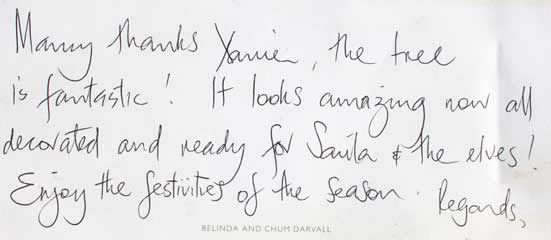 Many thanks Xavier, the tree
is fantastic! It looks amazing now all
decorated and ready for Santa & the elves!
Enjoy the festivities of the season. Regards,
BELINDA AND CHUM DARVALL